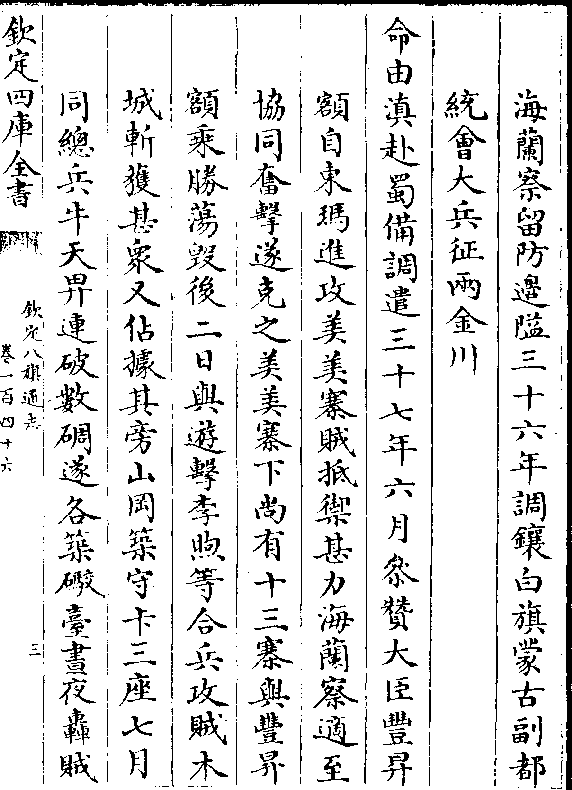 海蘭察留防邊隘三十六年調鑲白旗蒙古副都
統會大兵征兩金川
命由滇赴蜀備調遣三十七年六月叅贊大臣豐昇
額自東瑪進攻美美寨賊抵禦甚力海蘭察適至
協同奮擊遂克之美美寨下尚有十三寨與豐昇
額乘勝蕩毀後二日與遊擊李煦等合兵攻賊木
城斬獲甚衆又佔據其旁山岡築守卡三座七月
同總兵牛天畀連破數碉遂各築礮臺晝夜轟賊
欽定四庫全書
欽定八旗通志
卷一百四十六
三